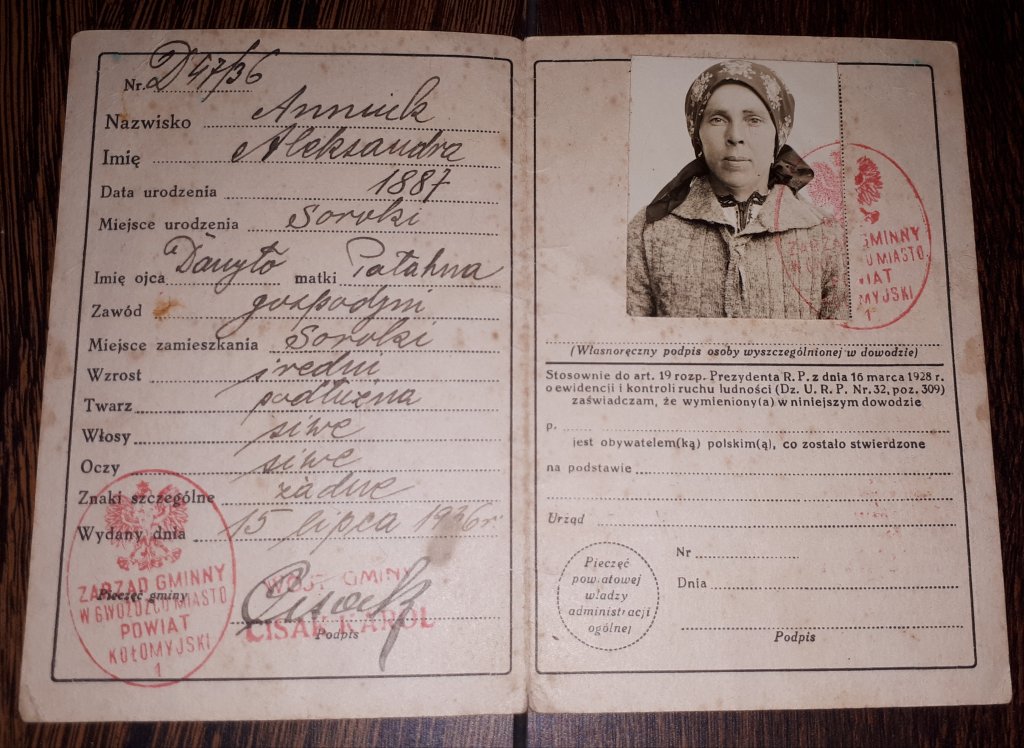 Nr. D 47/36
Nazwisko Anniuk
Imię Aleksandra
Data urodzenia 1887
Miejsce urodzenia Soroki
Imię ojca Danyło matki Parahna
Zawód gospodyni
Miejsce zamieszkania Soroki
Wzrost średni
Twarz podłużna
Włosy siwe
Oczy siwe
Znaki szczególne żadne
Wydany dnia 15 lipca 1936 r.
ZARZĄD GMINNY
W GWOŹDŹCU MIASTO
POWIAT
KOŁOMYJSKI
1
Pieczęć gminy
WÓJT GMINY
CISAK KAROL
Podpis
GMINNY
U MIASTO
IAT
MYJSKI
1
(Własnoręczny podpis osoby wyszczególnionej w dowodzie)
Stosownie do art. 19 rozp. Prezydenta R. P. z dnia 16 marca 1928 r.
o ewidencji i kontroli ruchu ludności (Dz. U. R. P. Nr. 32, poz. 309)
zaświadczam, że wymieniony(a) w niniejszym dowodzie
p.
jest obywatelem(ką) polskim(ą), co zostało stwierdzone
na podstawie
Urząd
Pieczęć
powiatowej
władzy
administracji
ogólnej
Nr
Dnia
Podpis